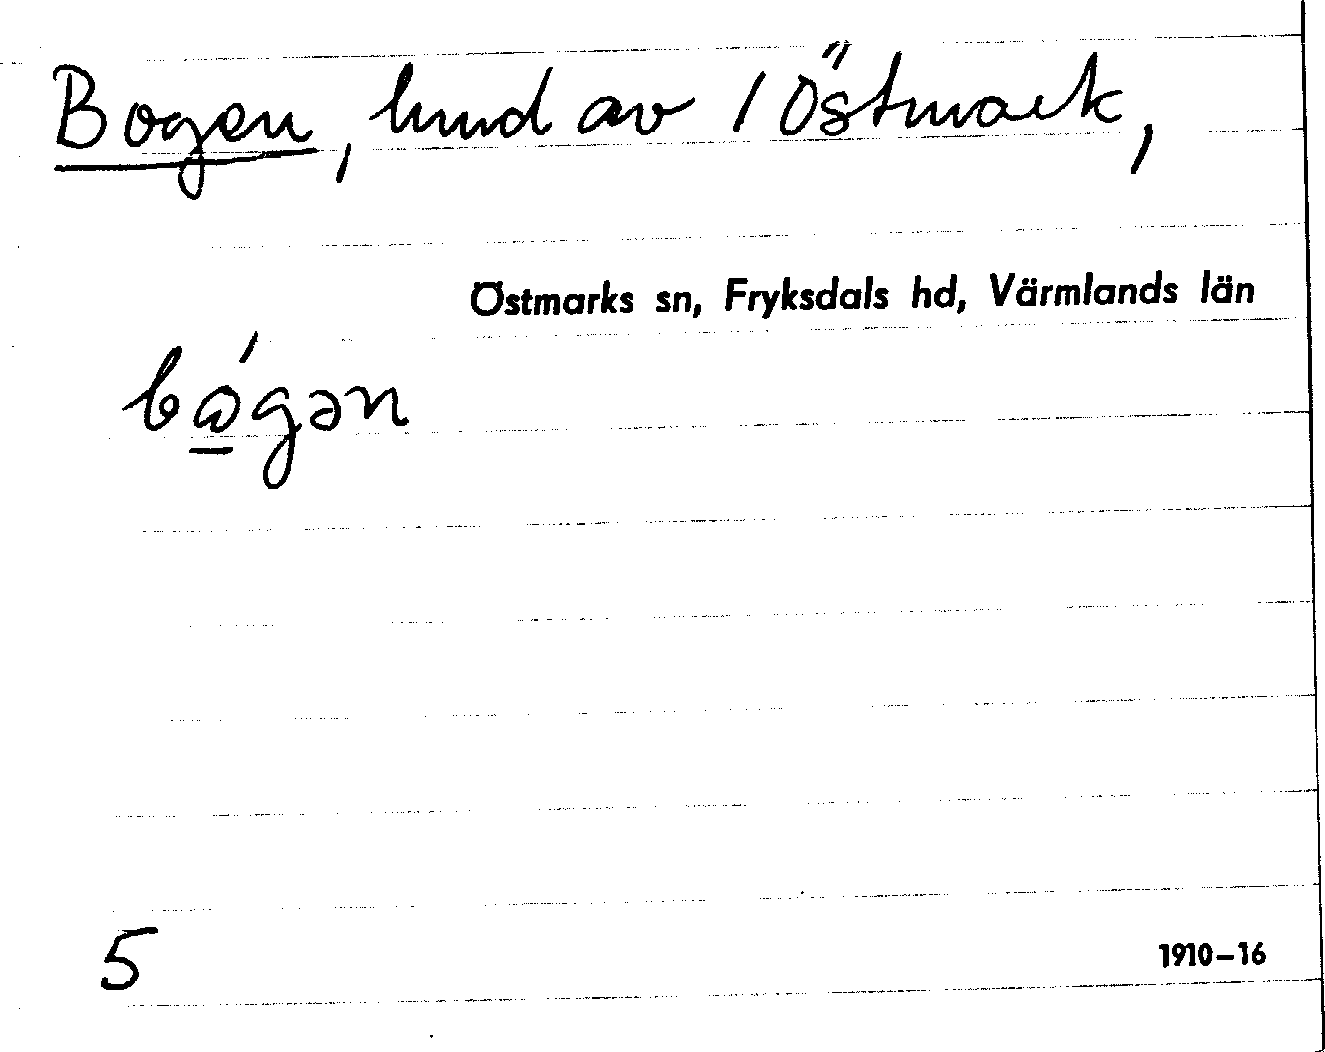 Bogen, hmd av 1 Östmark,
Östmarks sn, Fryksdals hd, Värmlands län
bǿgən
5
1910–16